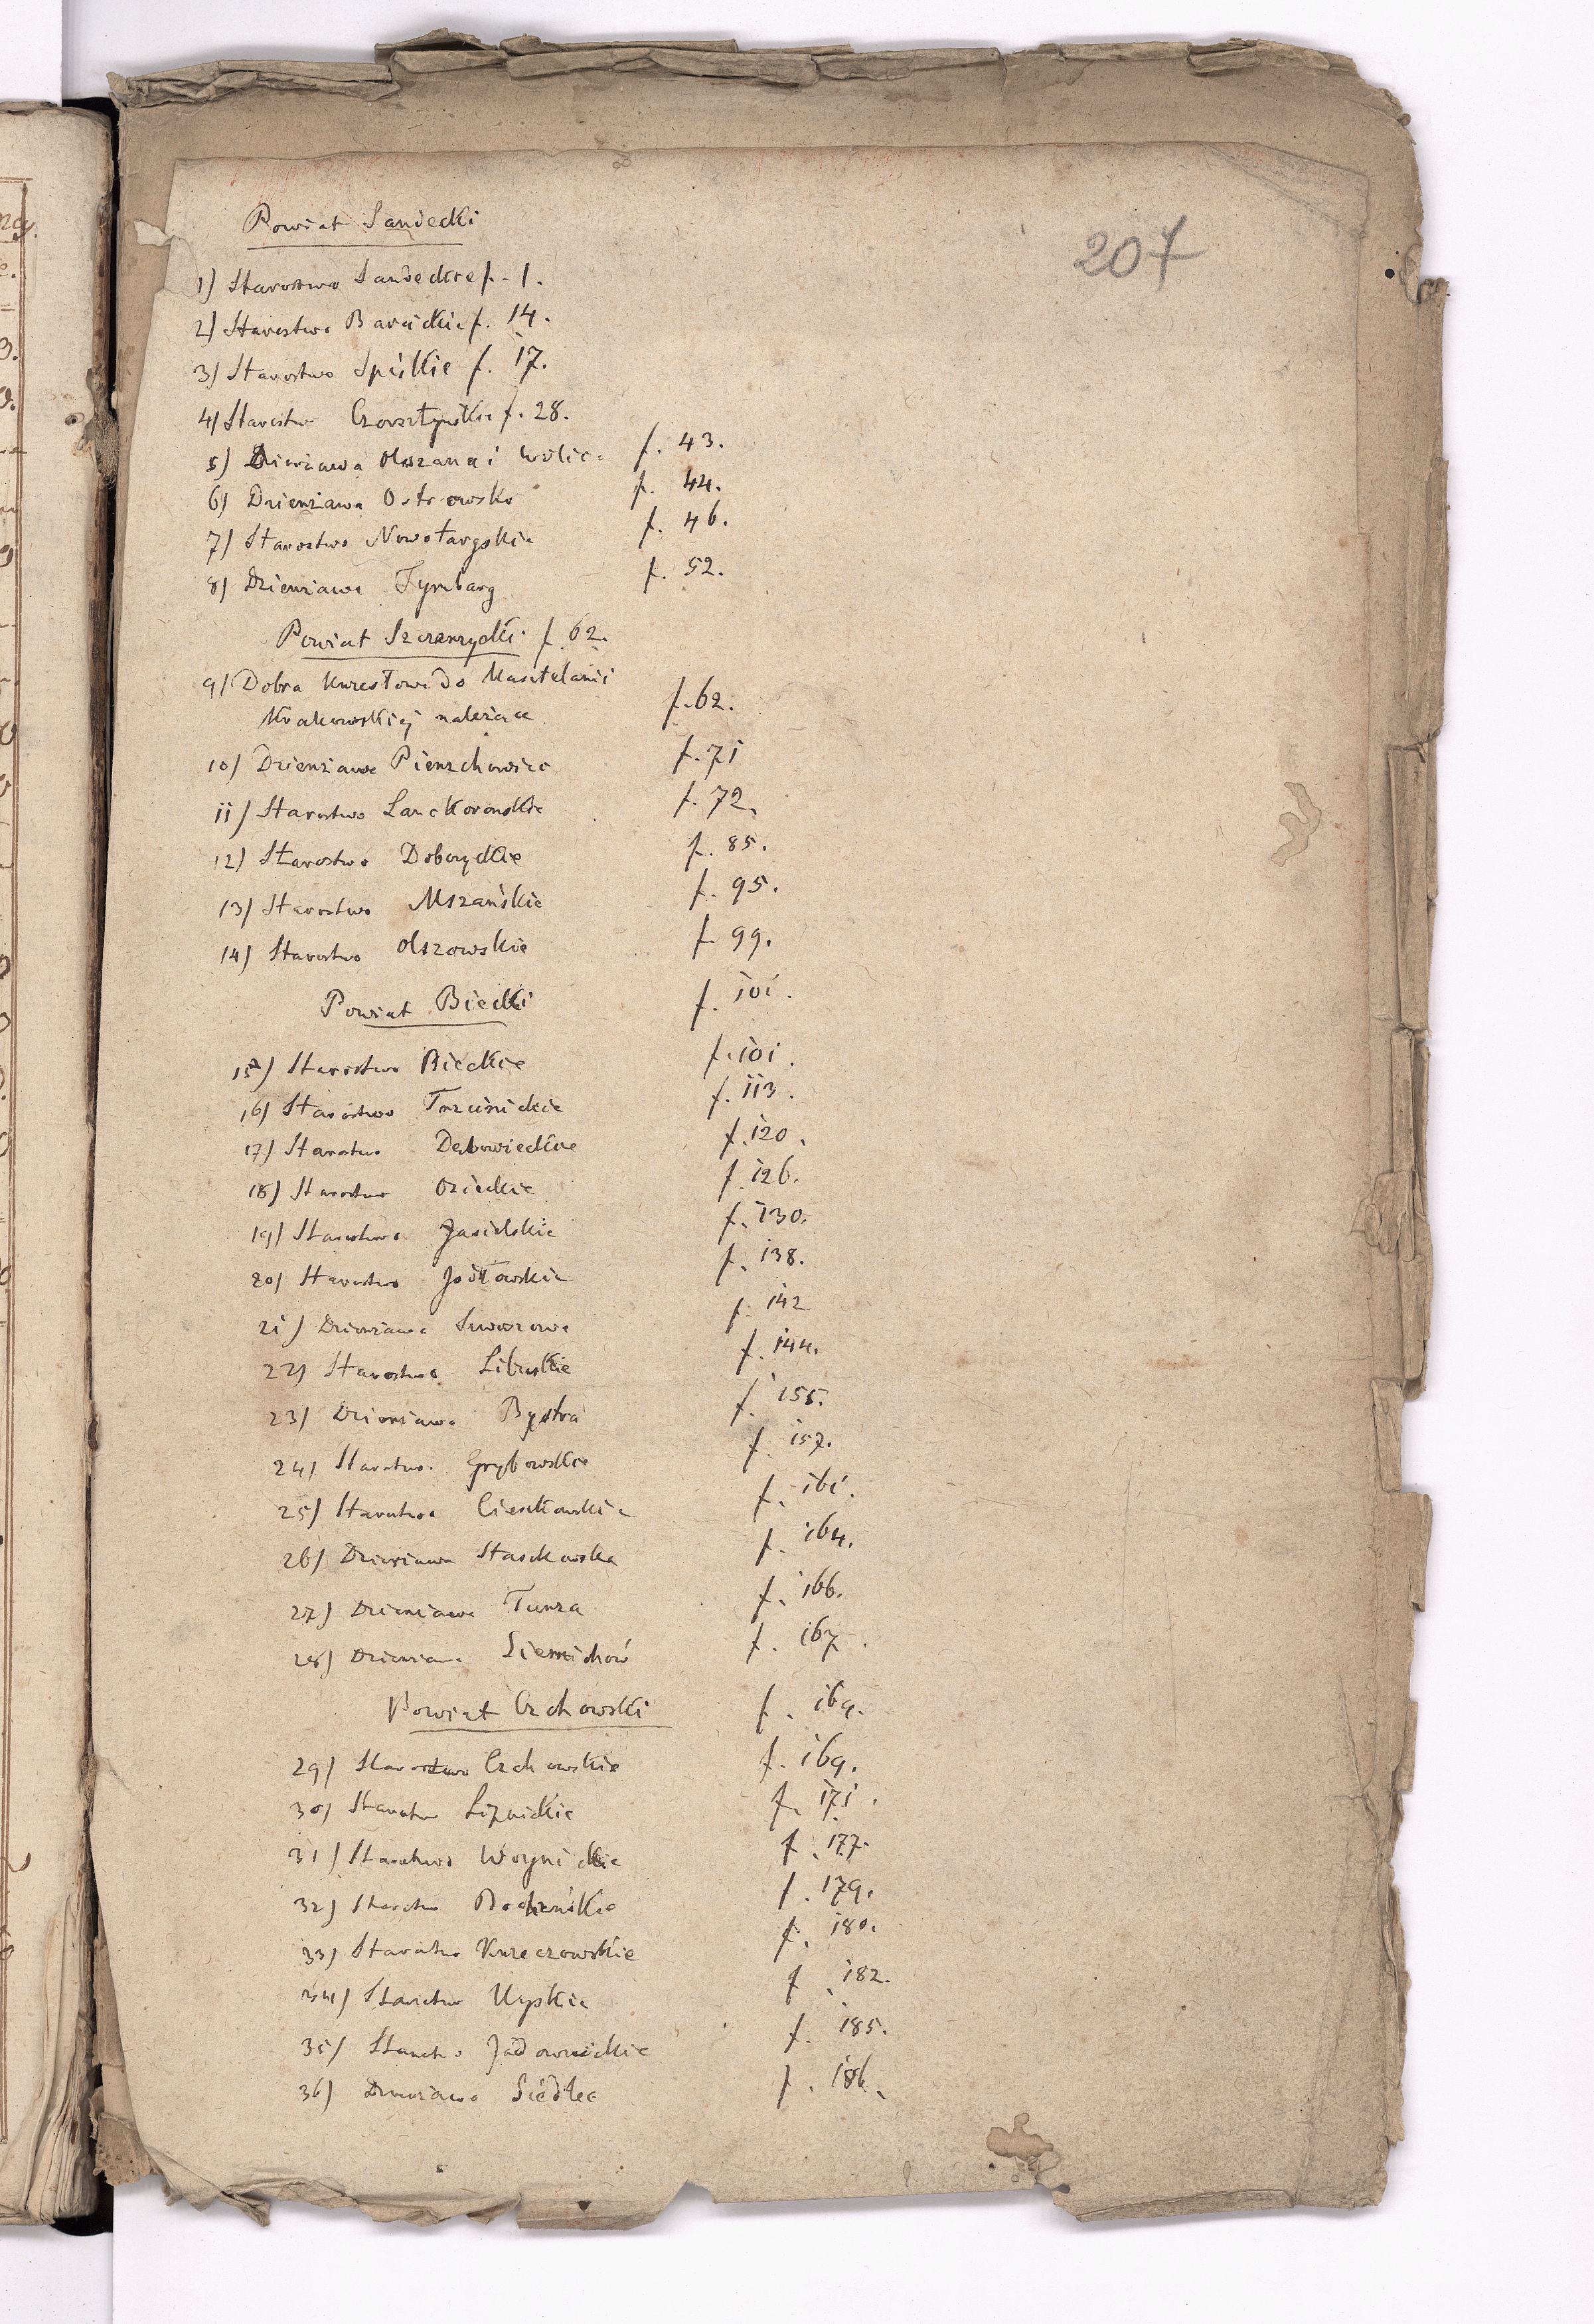 207
Powiat Sandecki
1) Starostwo Sandeckie f. 1.
2) Starostwo Barcickie f. 14.
3) Starostwo Spiskie f. 17.
4) Starostwo Czorsztyńskie f. 28.
5) Dzierżawa Olszana i Wolica f. 43.
6) Dzierżawa Ostrowsko f. 44.
7) Starostwo Nowotargskie f. 46.
8) Dzierżawa Tymbarg f. 52.
Powiat Szczerzycki f. 62.
9) Dobra Krzesłowe do Kasztelanii
Krakowskiej należące f. 62.
10) Dzierżawa Pierzchowiec f. 71
11) Starostwo Lanckorońskie f. 72.
12) Starostwo Dobczyckie f. 85.
13) Starostwo Mszańskie f. 95.
14) Starostwo Olszowskie f. 99.
Powiat Biecki f. 101.
15) Starostwo Bieckie f. 101.
16) Starostwo Trzcinickie f. 113.
17) Starostwo Dębowieckie f. 120.
18) Starostwo Osieckie f. 126.
19) Starostwo Jasielskie f. 130.
20) Starostwo Jodłowskie f. 138.
21) Dzierżawa Swoszowa f. 142
22) Starostwo Libuskie f. 144.
23) Dzierżawa Bystra f. 155.
24) Starostwo Grybowskie f. 157.
25) Starostwo Cieszkowskie f. 161.
26) Dzierżawa Staszkowska f. 164.
27) Dzierżawa Turza f. 166.
28) Dzierżawa Siemichów f. 167.
Powiat Czchowski f. 169.
29) Starostwo Czchowskie f. 169.
30) Starostwo Lipnickie f. 171.
31) Starostwo Woynickie f. 177.
32) Starostwo Bocheńskie f. 179.
33) Starostwo Krzeczowskie f. 180.
34) Starostwo f. 182.
35) Starostwo Jadownickie f. 185.
36) Dzierżawa Siedlec f. 186.